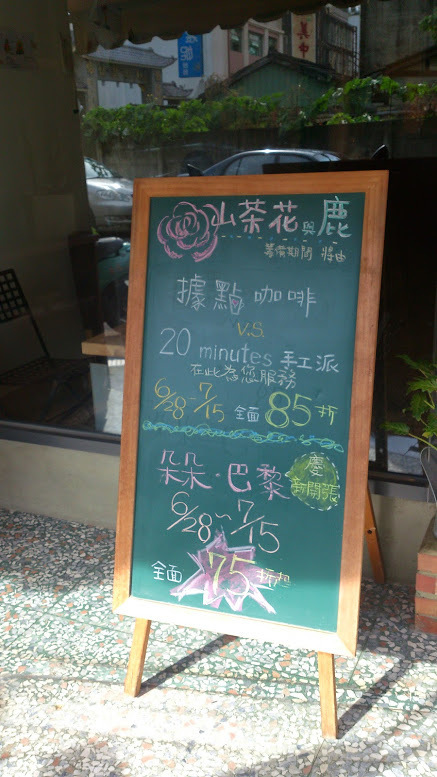 山茶花與鹿
籌備期間 將由
據點咖啡
V.S.
20 minutes 手工派
在此為您服務
6/28-7/15 全面85折
朵朵·巴黎
慶
新開張
6/28~7/15
全面75折起